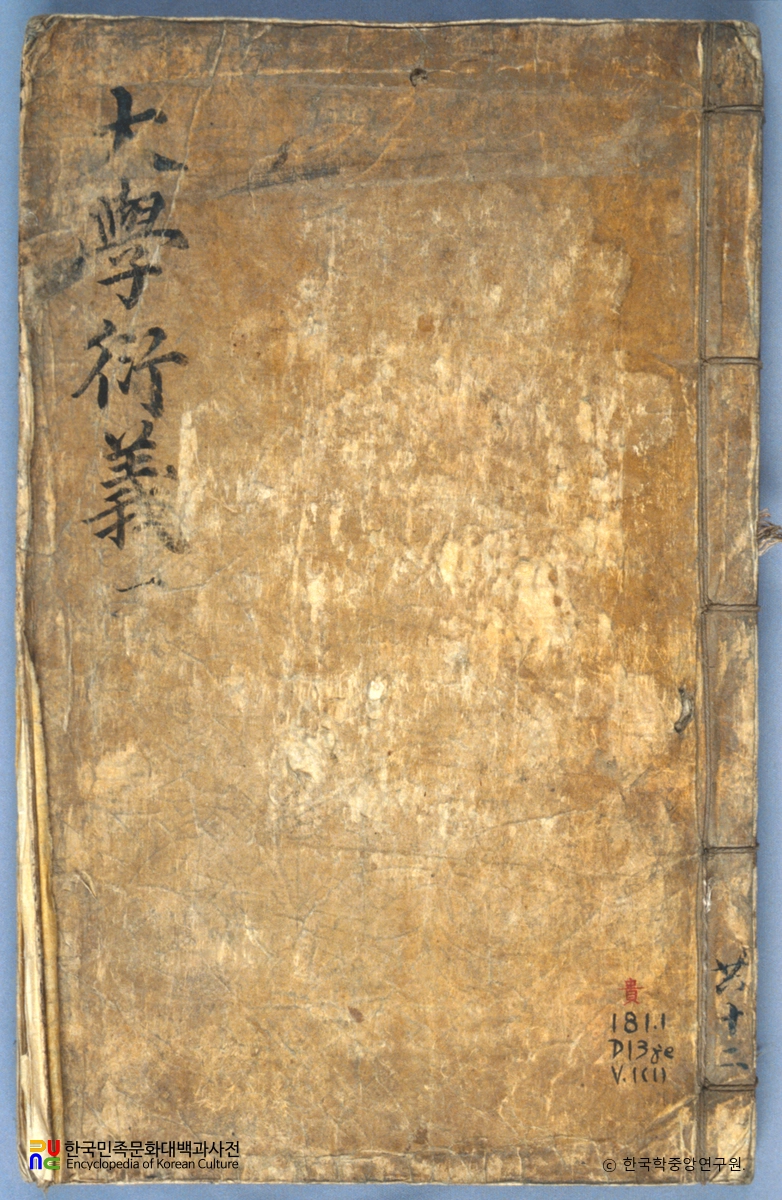 大學衍義 一
共十二
貴
181.1
D13je
V.1(1)
한국민족문화대백과사전
Encyclopedia of Korean Culture
© 한국학중앙연구원.